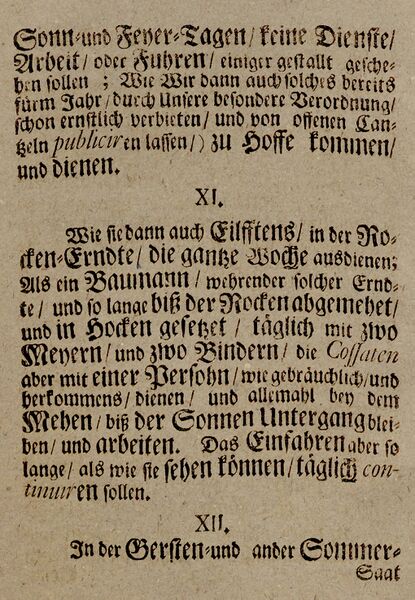 Sonn-und Feyer-Tagen/ keine Dienste/
Arbeit/ oder Fuhren/ einiger gestallt gesche-
hen sollen ; Wie Wir dann auch solches bereits
fürm Jahr/ durch Unsere besondere Verordnung/
schon ernstlich verbieten/ und von offenen Can-
tzeln publiciren lassen/) zu Hoffe kommen/
und dienen.
XI.
Wie sie dann auch Eilfftens/ in der Ro-
cken-Erndte/ die gantze Woche ausdienen;
Als ein Baumann/ wehrender solcher Ernd-
te/ und so lange biß der Rocken abgemehet/
und in Hocken gesetzet/ täglich mit zwo
Meyern/ und zwo Bindern/ die Cossaten
aber mit einer Persohn/ wie gebräuchlich/ und
herkommens/ dienen/ und allemahl bey dem
Mehen/ biß der Sonnen Untergang blei-
ben/ und arbeiten. Das Einfahren aber so
lange/ als wie sie sehen können/ täglich con-
tinuiren sollen.
XII.
In der Gersten-und ander Sommer-
Saat